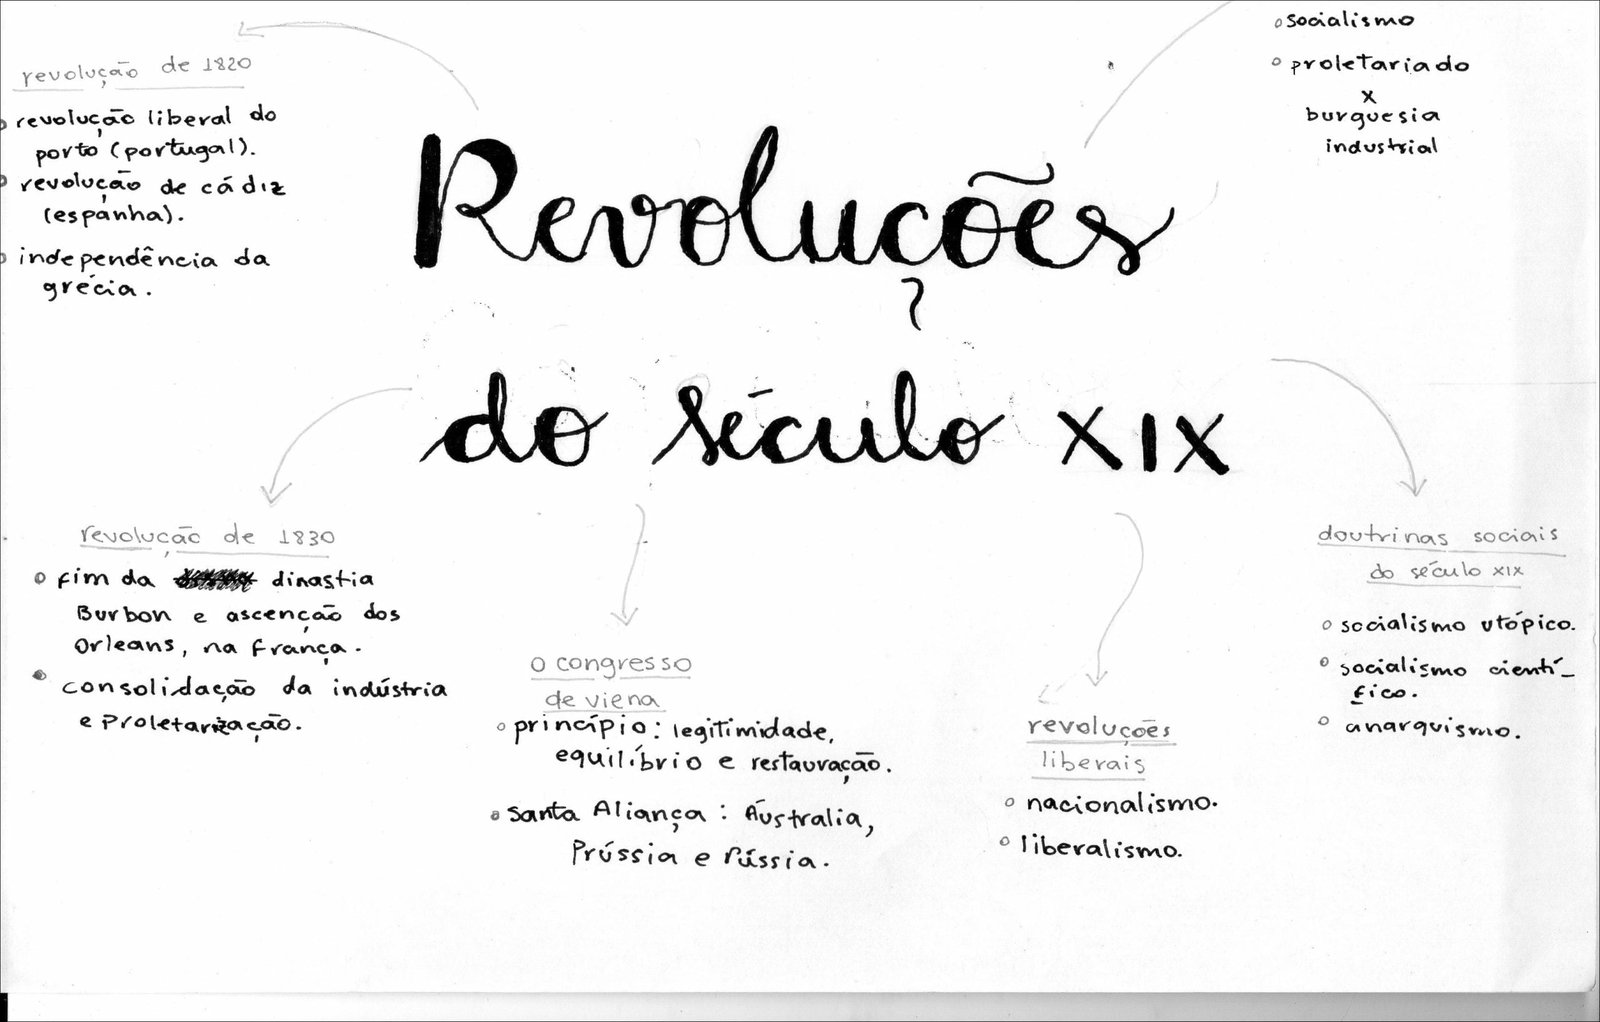 revolução de 1820
revolução liberal do
porto (portugal).
revolução de cádiz
(espanha).
independência da
grécia.
socialismo
proletariado
x
burguesia
industrial
Revoluções
do século XIX
revolução de 1830
fim da dinastia
Burbon e ascenção dos
Orleans, na França.
consolidação da indústria
e Proletarização.
o congresso
de viena
princípio: legitimidade,
equilíbrio e restauração.
Santa Aliança: Áustralia,
Prússia e Rússia.
revoluções
liberais
nacionalismo.
liberalismo.
doutrinas sociais
do século XIX
socialismo utópico.
socialismo cientí-
fico.
anarquismo.